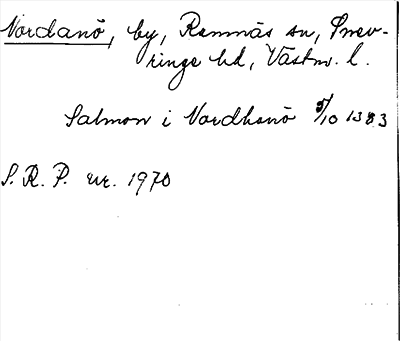 Nordanö, by, Ramnäs sn, Snev-
ringe hd, Västm. l.
Salmon i Nordhanö 5/10 1383
S. R. P. nr. 1970